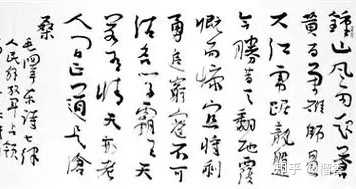 鍾山風雨起蒼
黄百万雄師過
大江虎踞龍盤
今勝昔天翻地覆
慨而慷宜將剩
勇追窮寇不可
沽名學霸王天
若有情天亦老
人间正道是滄
桑
毛澤東詩七律
人民解放軍占領
知乎